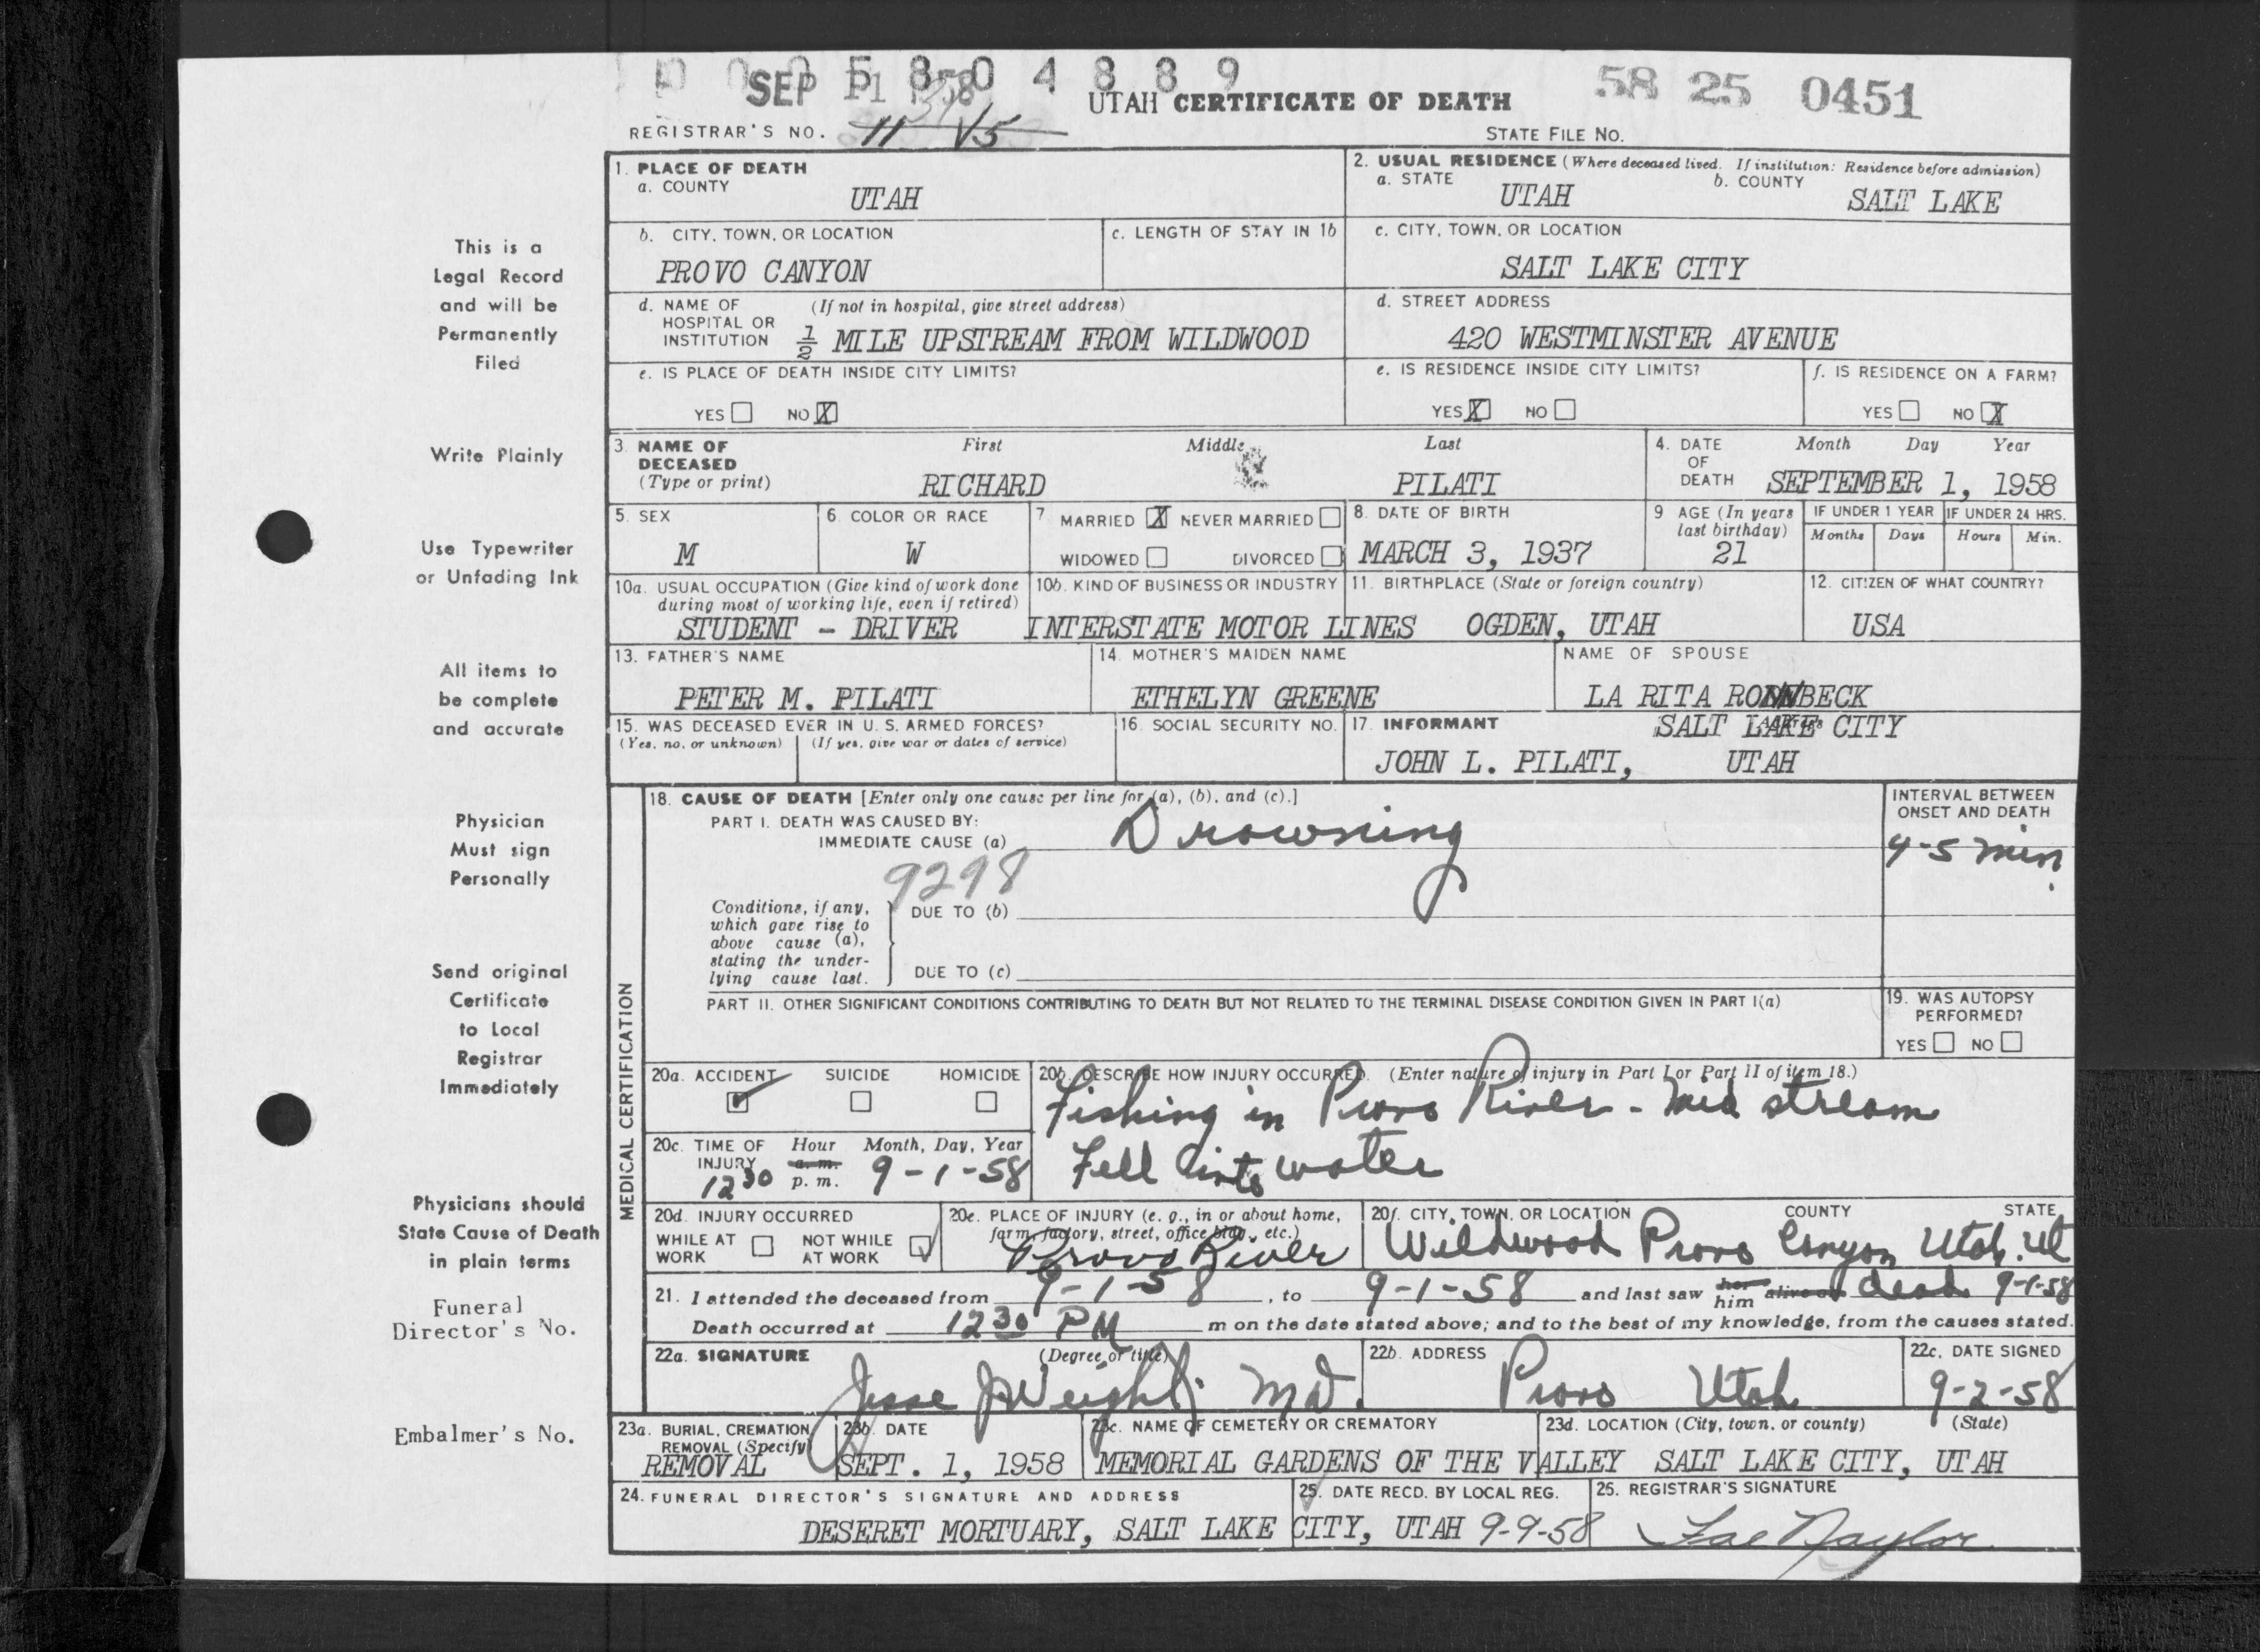 0 0 0 5 8 0 4 8 8 9
SEP 11 1958
58 25 0451
UTAH CERTIFICATE OF DEATH
REGISTRAR'S NO. 11 15
STATE FILE NO.
1. PLACE OF DEATH
a. COUNTY
UTAH
2. USUAL RESIDENCE (Where deceased lived. If institution: Residence before admission)
a. STATE
UTAH
b. COUNTY
SALT LAKE
b. CITY, TOWN, OR LOCATION
PROVO CANYON
c. LENGTH OF STAY IN 1b
c. CITY, TOWN, OR LOCATION
SALT LAKE CITY
d. NAME OF (If not in hospital, give street address)
HOSPITAL OR
INSTITUTION
1/2 MILE UPSTREAM FROM WILDWOOD
d. STREET ADDRESS
420 WESTMINSTER AVENUE
e. IS PLACE OF DEATH INSIDE CITY LIMITS?
YES NO X
e. IS RESIDENCE INSIDE CITY LIMITS?
YES X NO
f. IS RESIDENCE ON A FARM?
YES NO X
3. NAME OF
DECEASED
(Type or print)
First Middle Last
RICHARD PILATI
4. DATE
OF
DEATH
Month Day Year
SEPTEMBER 1, 1958
5. SEX
M
6. COLOR OR RACE
W
7 MARRIED X NEVER MARRIED
WIDOWED DIVORCED
8. DATE OF BIRTH
MARCH 3, 1937
9 AGE (In years
last birthday)
21
IF UNDER 1 YEAR
Months Days
IF UNDER 24 HRS.
Hours Min.
10a. USUAL OCCUPATION (Give kind of work done
during most of working life, even if retired)
STUDENT - DRIVER
10b. KIND OF BUSINESS OR INDUSTRY
INTERSTATE MOTOR LINES
11. BIRTHPLACE (State or foreign country)
OGDEN, UTAH
12. CITIZEN OF WHAT COUNTRY?
USA
13. FATHER'S NAME
PETER M. PILATI
14. MOTHER'S MAIDEN NAME
ETHELYN GREENE
NAME OF SPOUSE
LA RITA
15. WAS DECEASED EVER IN U. S. ARMED FORCES?
(Yes, no, or unknown) (If yes, give war or dates of service)
16. SOCIAL SECURITY NO.
17. INFORMANT
SALT LAKE CITY
JOHN L. PILATI, UTAH
MEDICAL CERTIFICATION
18. CAUSE OF DEATH [Enter only one cause per line for (a), (b), and (c).]
PART I. DEATH WAS CAUSED BY:
IMMEDIATE CAUSE (a) Drowning
9298
INTERVAL BETWEEN
ONSET AND DEATH
4-5 min.
Conditions, if any,
which gave rise to
above cause (a),
stating the under-
lying cause last.
DUE TO (b)
DUE TO (c)
PART II. OTHER SIGNIFICANT CONDITIONS CONTRIBUTING TO DEATH BUT NOT RELATED TO THE TERMINAL DISEASE CONDITION GIVEN IN PART I(a)
19. WAS AUTOPSY
PERFORMED?
YES NO
20a. ACCIDENT SUICIDE HOMICIDE
20b. DESCRIBE HOW INJURY OCCURRED. (Enter nature of injury in Part I or Part II of item 18.)
Fishing in Provo River - mid stream
Fell into water
20c. TIME OF Hour Month, Day, Year
INJURY a. m.
12 30 p. m. 9-1-58
20d. INJURY OCCURRED
WHILE AT
WORK
NOT WHILE
AT WORK
20e. PLACE OF INJURY (e. g., in or about home,
farm, factory, street, office bldg., etc.)
Provo River
20f. CITY, TOWN, OR LOCATION COUNTY STATE
Wildwood Provo Canyon Utah. Ut
21. I attended the deceased from 9-1-58, to 9-1-58 and last saw her him alive on dead 9-1-58
Death occurred at 12 30 PM m on the date stated above; and to the best of my knowledge, from the causes stated.
22a. SIGNATURE (Degree or title)
Jesse J Weight MD.
22b. ADDRESS
Provo Utah
22c. DATE SIGNED
9-2-58
23a. BURIAL, CREMATION,
REMOVAL (Specify)
REMOVAL
23b. DATE
SEPT. 1, 1958
23c. NAME OF CEMETERY OR CREMATORY
MEMORIAL GARDENS OF THE VALLEY
23d. LOCATION (City, town, or county) (State)
SALT LAKE CITY, UTAH
24. FUNERAL DIRECTOR'S SIGNATURE AND ADDRESS
DESERET MORTUARY, SALT LAKE CITY, UTAH
25. DATE RECD. BY LOCAL REG.
9-9-58
26. REGISTRAR'S SIGNATURE
Fae Naylor
This is a
Legal Record
and will be
Permanently
Filed
Write Plainly
Use Typewriter
or Unfading Ink
All items to
be complete
and accurate
Physician
Must sign
Personally
Send original
Certificate
to Local
Registrar
Immediately
Physicians should
State Cause of Death
in plain terms
Funeral
Director's No.
Embalmer's No.